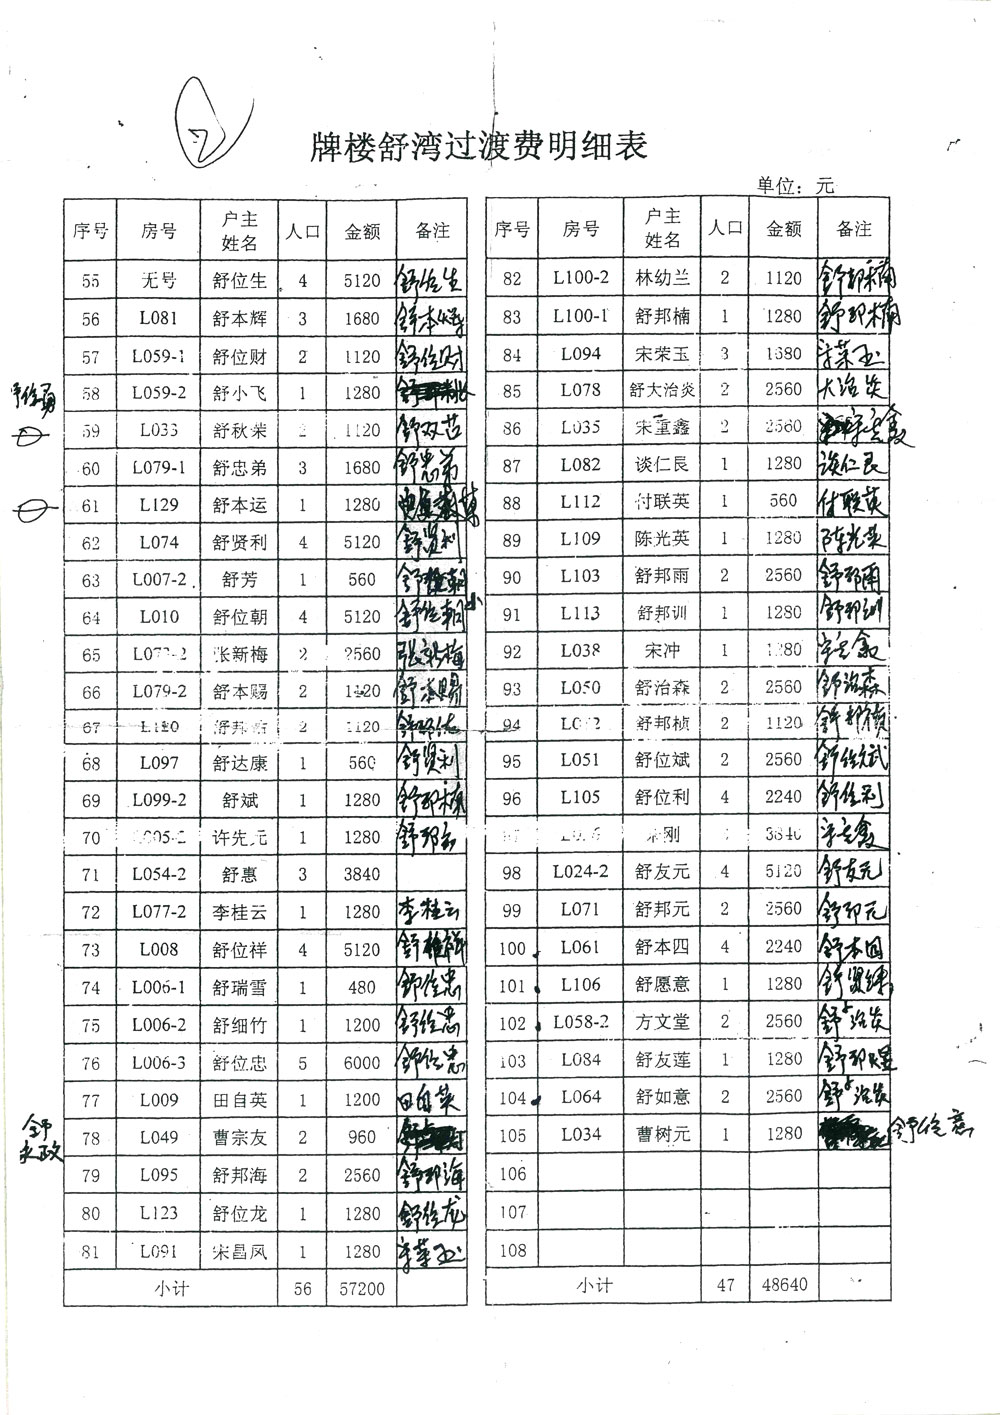 牌楼舒湾过渡费明细表
单位：元
序号 房号 户主姓名 人口 金额 备注
55 无号 舒位生 4 5120 舒位生
56 L081 舒本辉 3 1680 舒本辉
57 L059-1 舒位财 2 1120 舒位财
58 L059-2 舒小飞 1 1280
59 L033 舒秋荣 2 1120 舒双芒
60 L079-1 舒忠弟 3 1680 舒忠弟
61 L129 舒本运 1 1280
62 L074 舒贤利 4 5120 舒贤利
63 L007-2 舒芳 1 560
64 L010 舒位朝 4 5120 舒位朝
65 2 张新梅 2 2560 张新梅
66 L079-2 舒本赐 2 1120 舒本赐
67 L120 舒邦 2 1120
68 L097 舒达康 1 560 舒贤利
69 L099-2 舒斌 1 1280
70 许先元 1 1280
71 L054-2 舒惠 3 3840
72 L077-2 李桂云 1 1280 李桂云
73 L008 舒位祥 4 5120 舒位祥
74 L006-1 舒瑞雪 1 480 舒位忠
75 L006-2 舒细竹 1 1200 舒位忠
76 L006-3 舒位忠 5 6000 舒位忠
77 L009 田自英 1 1200 田自英
舒永政
78 L049 曹宗友 2 960
79 L095 舒邦海 2 2560 舒邦海
80 L123 舒位龙 1 1280 舒位龙
81 L091 宋昌凤 1 1280 宋荣玉
小计 56 57200
序号 房号 户主姓名 人口 金额 备注
82 L100-2 林幼兰 2 1120 舒邦楠
83 L100-1 舒邦楠 1 1280 舒邦楠
84 L094 宋荣玉 3 1680 宋荣玉
85 L078 舒大治炎 2 2560 大治炎
86 L035 宋重鑫 2 2560
87 L082 谈仁艮 1 1280 谈仁艮
88 L112 付联英 1 560 付联英
89 L109 陈光英 1 1280 陈光英
90 L103 舒邦雨 2 2560 舒邦雨
91 L113 舒邦训 1 1280 舒邦训
92 L038 宋冲 1 1280
93 L050 舒治森 2 2560 舒治森
94 舒邦桢 2 1120 舒邦桢
95 L051 舒位斌 2 2560 舒位斌
96 L105 舒位利 4 2240 舒位利
刚 3840
98 L024-2 舒友元 4 5120 舒友元
99 L071 舒邦元 2 2560 舒邦元
100 L061 舒本四 4 2240 舒本四
101 L106 舒愿意 1 1280
102 L058-2 方文堂 2 2560 舒小治炎
103 L084 舒友莲 1 1280
104 L064 舒如意 2 2560 舒小治炎
105 L034 曹树元 1 1280 舒位意
106
107
108
小计 47 48640